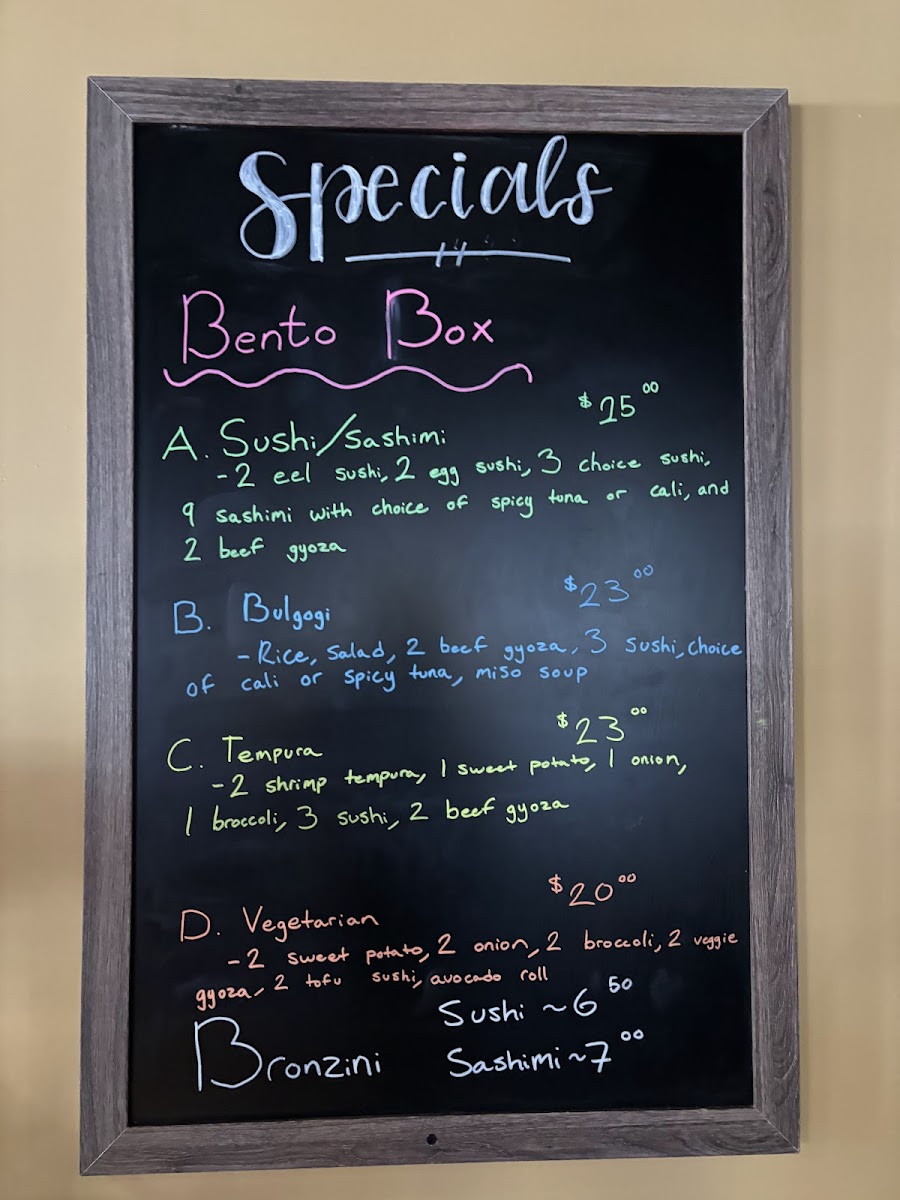 Specials
Bento Box
$25.00
A. Sushi/Sashimi
-2 eel sushi, 2 egg sushi, 3 choice sushi,
9 sashimi with choice of spicy tuna or cali, and
2 beef gyoza
$23.00
B. Bulgogi
-Rice, Salad, 2 beef gyoza, 3 sushi, choice
of cali or spicy tuna, miso soup
$23.00
C. Tempura
-2 shrimp tempura, 1 sweet potato, 1 onion,
1 broccoli, 3 sushi, 2 beef gyoza
$20.00
D. Vegetarian
-2 sweet potato, 2 onion, 2 broccoli, 2 veggie
gyoza, 2 tofu sushi, avocado roll
Sushi ~6 50
Bronzini Sashimi ~7 00